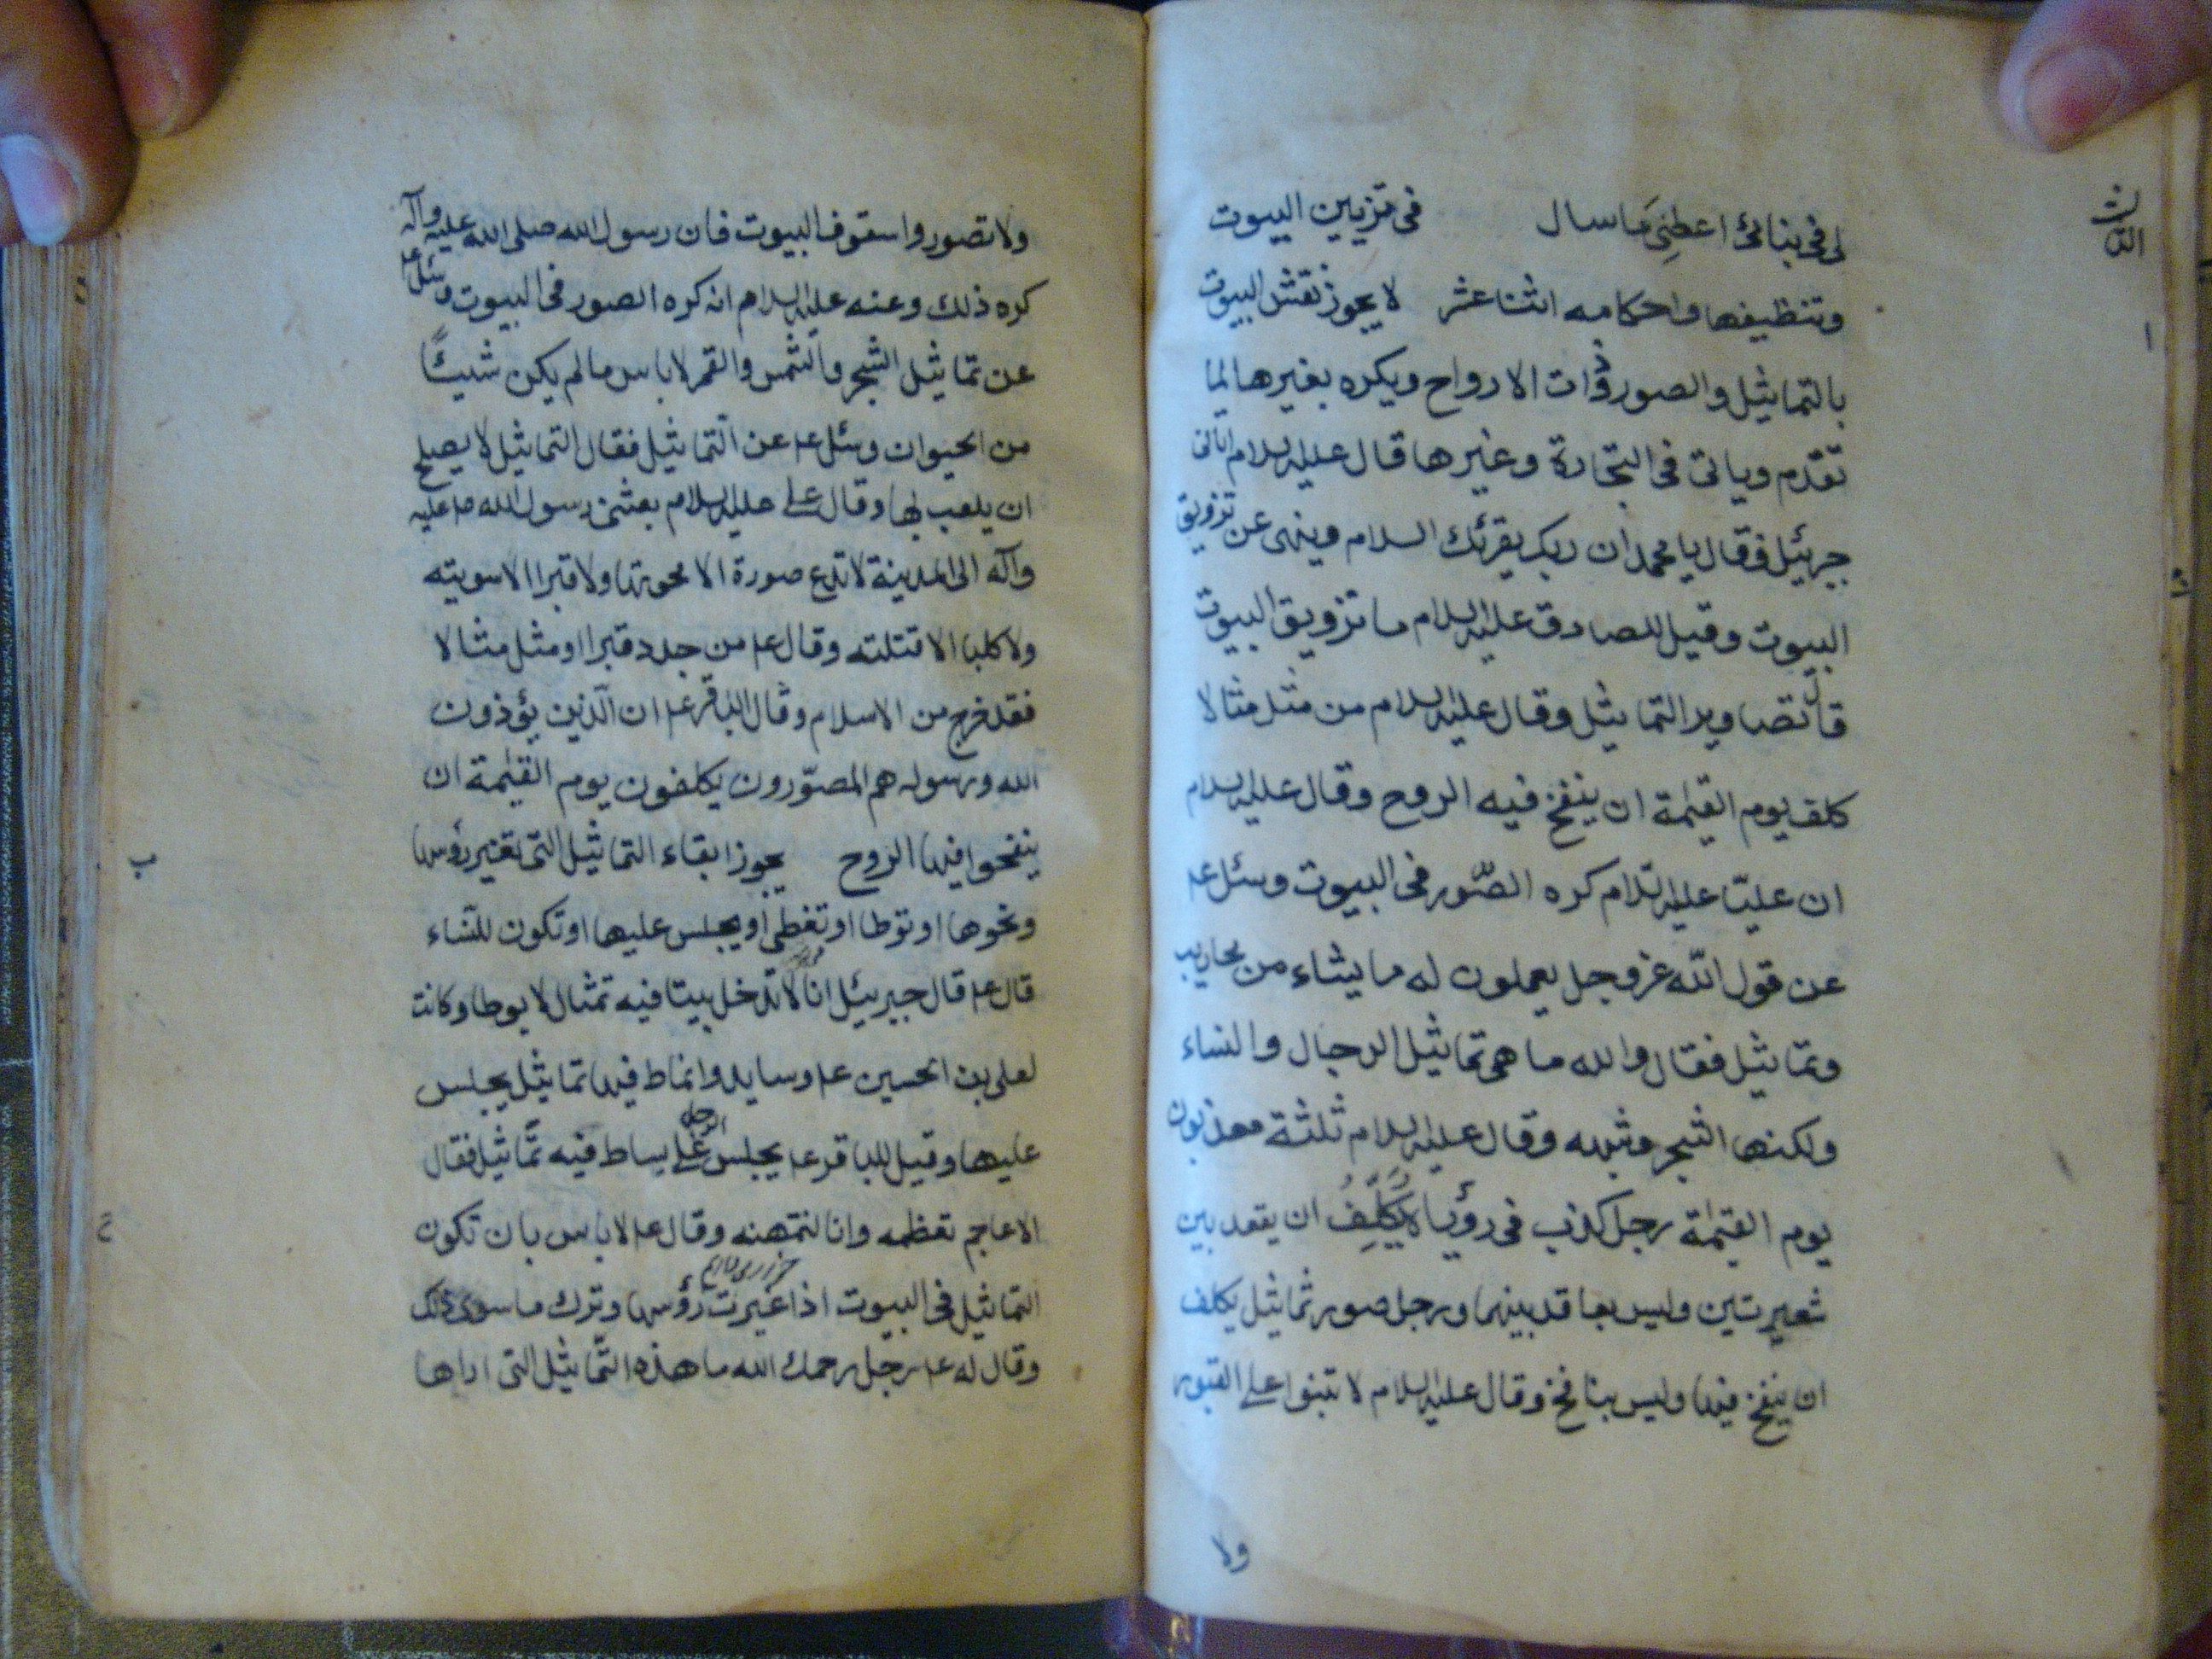 الثالث
لى فى بنائى اعطنى ما سال فى تزيين البيوت
وتنظيفها واحكامه اثنا عشر لا يجوز نقش البيوت
ا
بالتماثيل والصور ذوات الارواح ويكره بغيرها لما
تقدم وياتى فى التجارة وغيرها قال عليه السلام اتانى
جبرئيل فقال يا محمد ان ربك يقرئك السلام وينهى عن تزويق
البيوت وقيل للصادق عليه السلام ما تزويق البيوت
قال تصاوير التماثيل وقال عليه السلام من مثل مثالا
كلف يوم القيمة ان ينفخ فيه الروح وقال عليه السلام
ان عليا عليه السلام كره الصور فى البيوت وسئل ع
عن قول الله عز وجل يعملون له ما يشاء من محاريب
وتماثيل فقال والله ما هى تماثيل الرجال والنساء
ولكنها الشجر وشبهه وقال عليه السلام ثلثة معذبون
يوم القيمة رجل كذب فى رؤياه يُكَلَّفُ ان يقعد بين
شعيرتين وليس بعاقد بينهما ورجل صور تماثيل يكلف
ان ينفخ فيها وليس بنافخ وقال عليه السلام لا تبنوا على القبور
ولا
ولا تصوروا سقوف البيوت فان رسول الله صلى الله عليه وآله
كره ذلك وعنه عليه السلام انه كره الصور فى البيوت وسئل ع
عن تماثيل الشجر والشمس والقمر لا باس ما لم يكن شيئًا
من الحيوان وسئل ع عن التماثيل فقال التماثيل لا يصلح
ان يلعب بها وقال على عليه السلام بعثنى رسول الله ص عليه
وآله الى المدينة لا تدع صورة الا محوتها ولا قبرا الا سويته
ولا كلبا الا قتلته وقال ع من جدد قبرا او مثل مثالا
فقد خرج من الاسلام وقال الباقر ع ان الذين يؤذون
الله ورسوله هم المصوّرون يكلفون يوم القيمة ان
ينفخوا فيها الروح يجوز ابقاء التماثيل التى تغير رؤسها
ب
ونحوها او توطا او تغطى او يجلس عليها او تكون للنساء
قال ع قال جبرئيل انا لا ندخل بيتا فيه تمثال لا يوطا وكانت
لعلى بن الحسين ع وسايد وانماط فيها تماثيل يجلس
عليها وقيل للباقر ع يجلس الرجل على بساط فيه تماثيل فقال
الاعاجم تعظمه وانا لنمتهنه وقال ع لا باس بان تكون
ج
التماثيل فى البيوت اذا غيرت رؤسها وترك ما سوى ذلك
وقال له ع رجل رحمك الله ما هذه التماثيل التى اراها